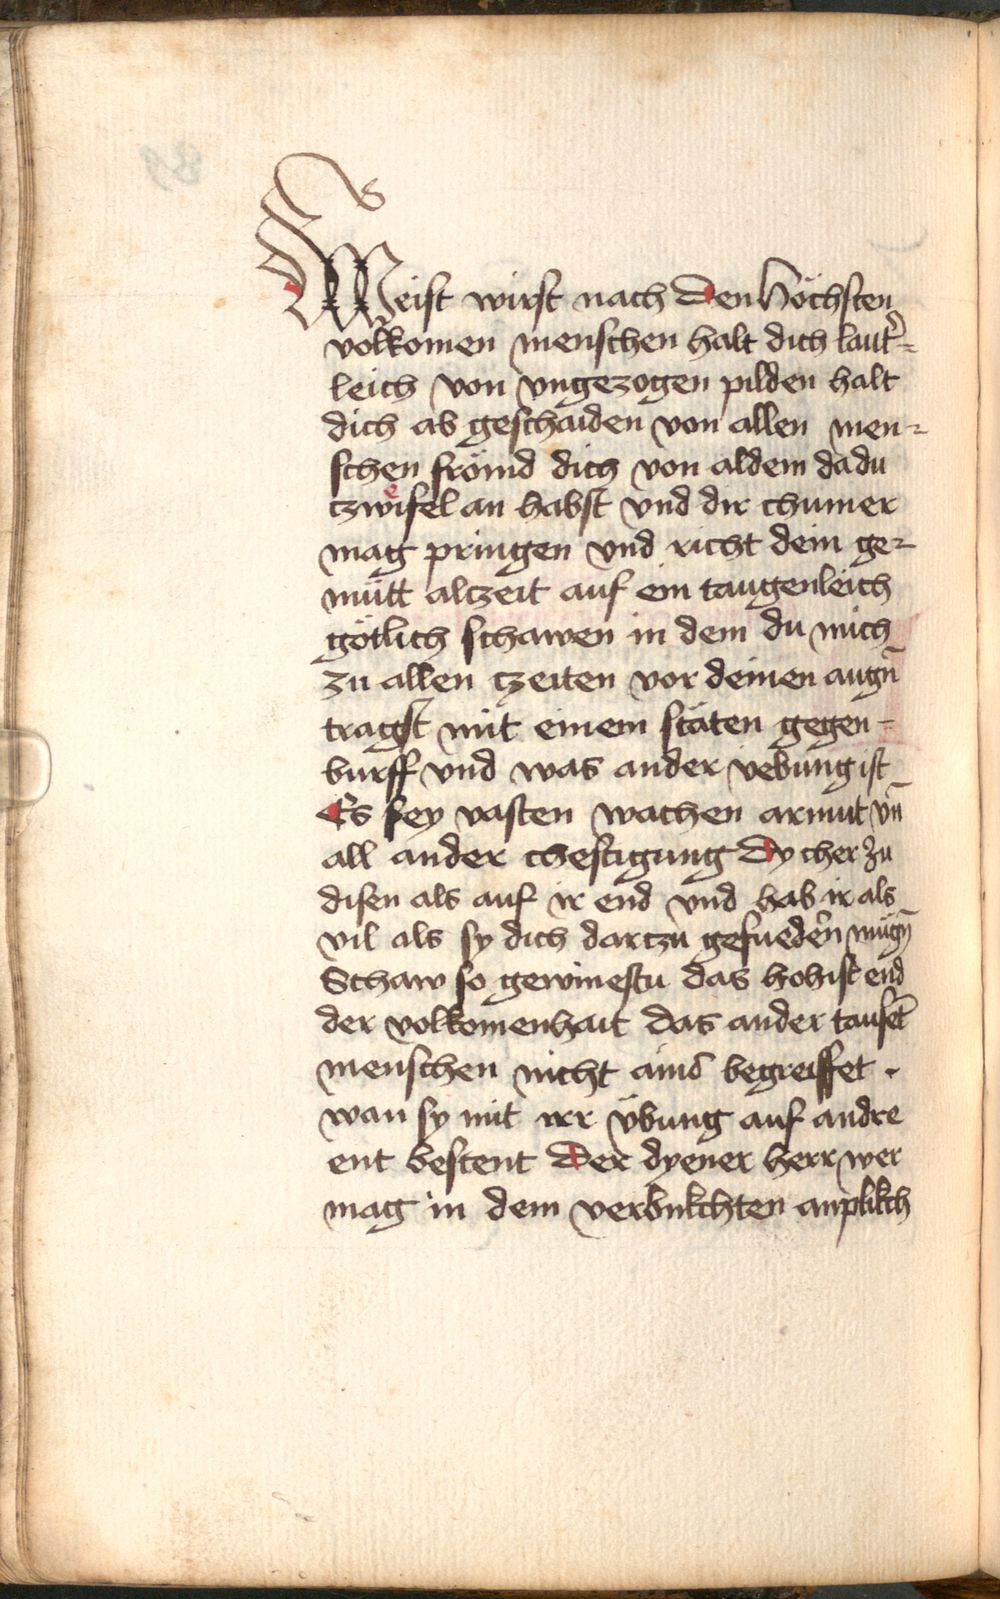 Meist wirst nach den höchsten
volkomen menschen halt dich laut̄=
leich von vngezogen pilden halt
dich ab geschaiden von allen men=
schen frömd dich von aldem da du
czwifel an habst vnd dir chumer
mag pringen vnd richt dein ge=
mütt alczeit auf ein taugenleich
götlich schawen in dem du mich
zu allen czeiten vor deinen augn̄
tragst mit einem stäten gegen=
burff vnd was ander vebung ist
Es sey vasten wachen armut vn̄
all ander chestigung Dy cher zu
disen als auf ir end vnd hab ir als
vil als sy dich darczu gefuedern mügn̄
Schaw so gewinestu das hohist end
der volkomenhait das ander tauset̄
menschen nicht ains begreiffet .
wan sy mit irr übung auf andre
ent bestent Der dyener herr wer
mag in dem anplikch